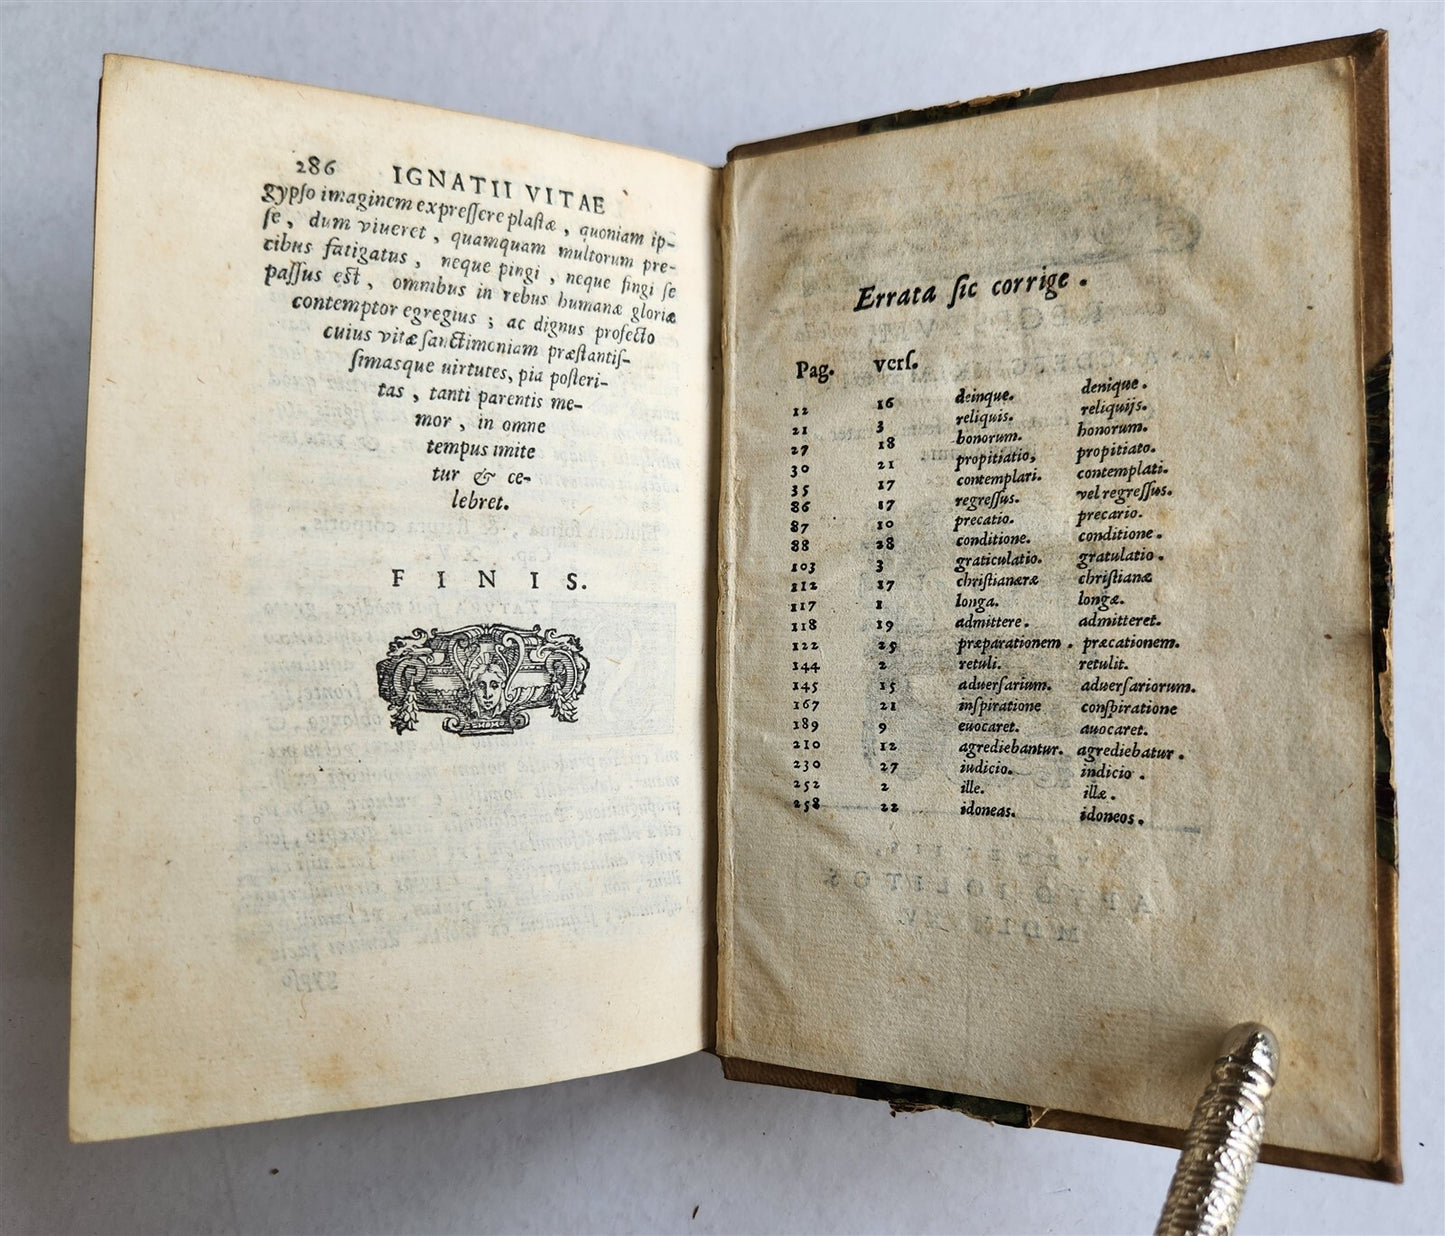 286 IGNATII VITAE
gypſo imaginem expreſſere plaſtæ, quoniam ip-
ſe, dum viueret, quamquam multorum pre-
cibus fatigatus, neque pingi, neque fingi ſe
paſſus eſt, omnibus in rebus humanæ gloriæ
contemptor egregius; ac dignus profecto
cuius vitæ ſanctimoniam præſtantiſ-
ſimasque uirtutes, pia poſteri-
tas, tanti parentis me-
mor, in omne
tempus imite
tur & ce-
lebret.
FINIS.
Errata ſic corrige.
Pag. verſ.
12 16 deinque. denique.
21 3 reliquis. reliquijs.
27 18 bonorum. honorum.
30 21 propitiatio, propitiato.
35 17 contemplari. contemplati.
86 17 regreſſus. vel regreſſus.
87 10 precatio. precario.
88 28 conditione. conditione.
103 3 graticulatio. gratulatio.
112 17 chriſtianæræ chriſtianæ
117 1 longa. longæ.
118 19 admittere. admitteret.
122 25 præparationem. præcationem.
144 2 retuli. retulit.
145 15 aduerſarium. aduerſariorum.
167 21 inſpiratione conſpiratione
189 9 euocaret. auocaret.
210 12 agrediebantur. agrediebatur.
230 27 iudicio. indicio.
252 2 ille. illæ.
258 22 idoneas. idoneos.